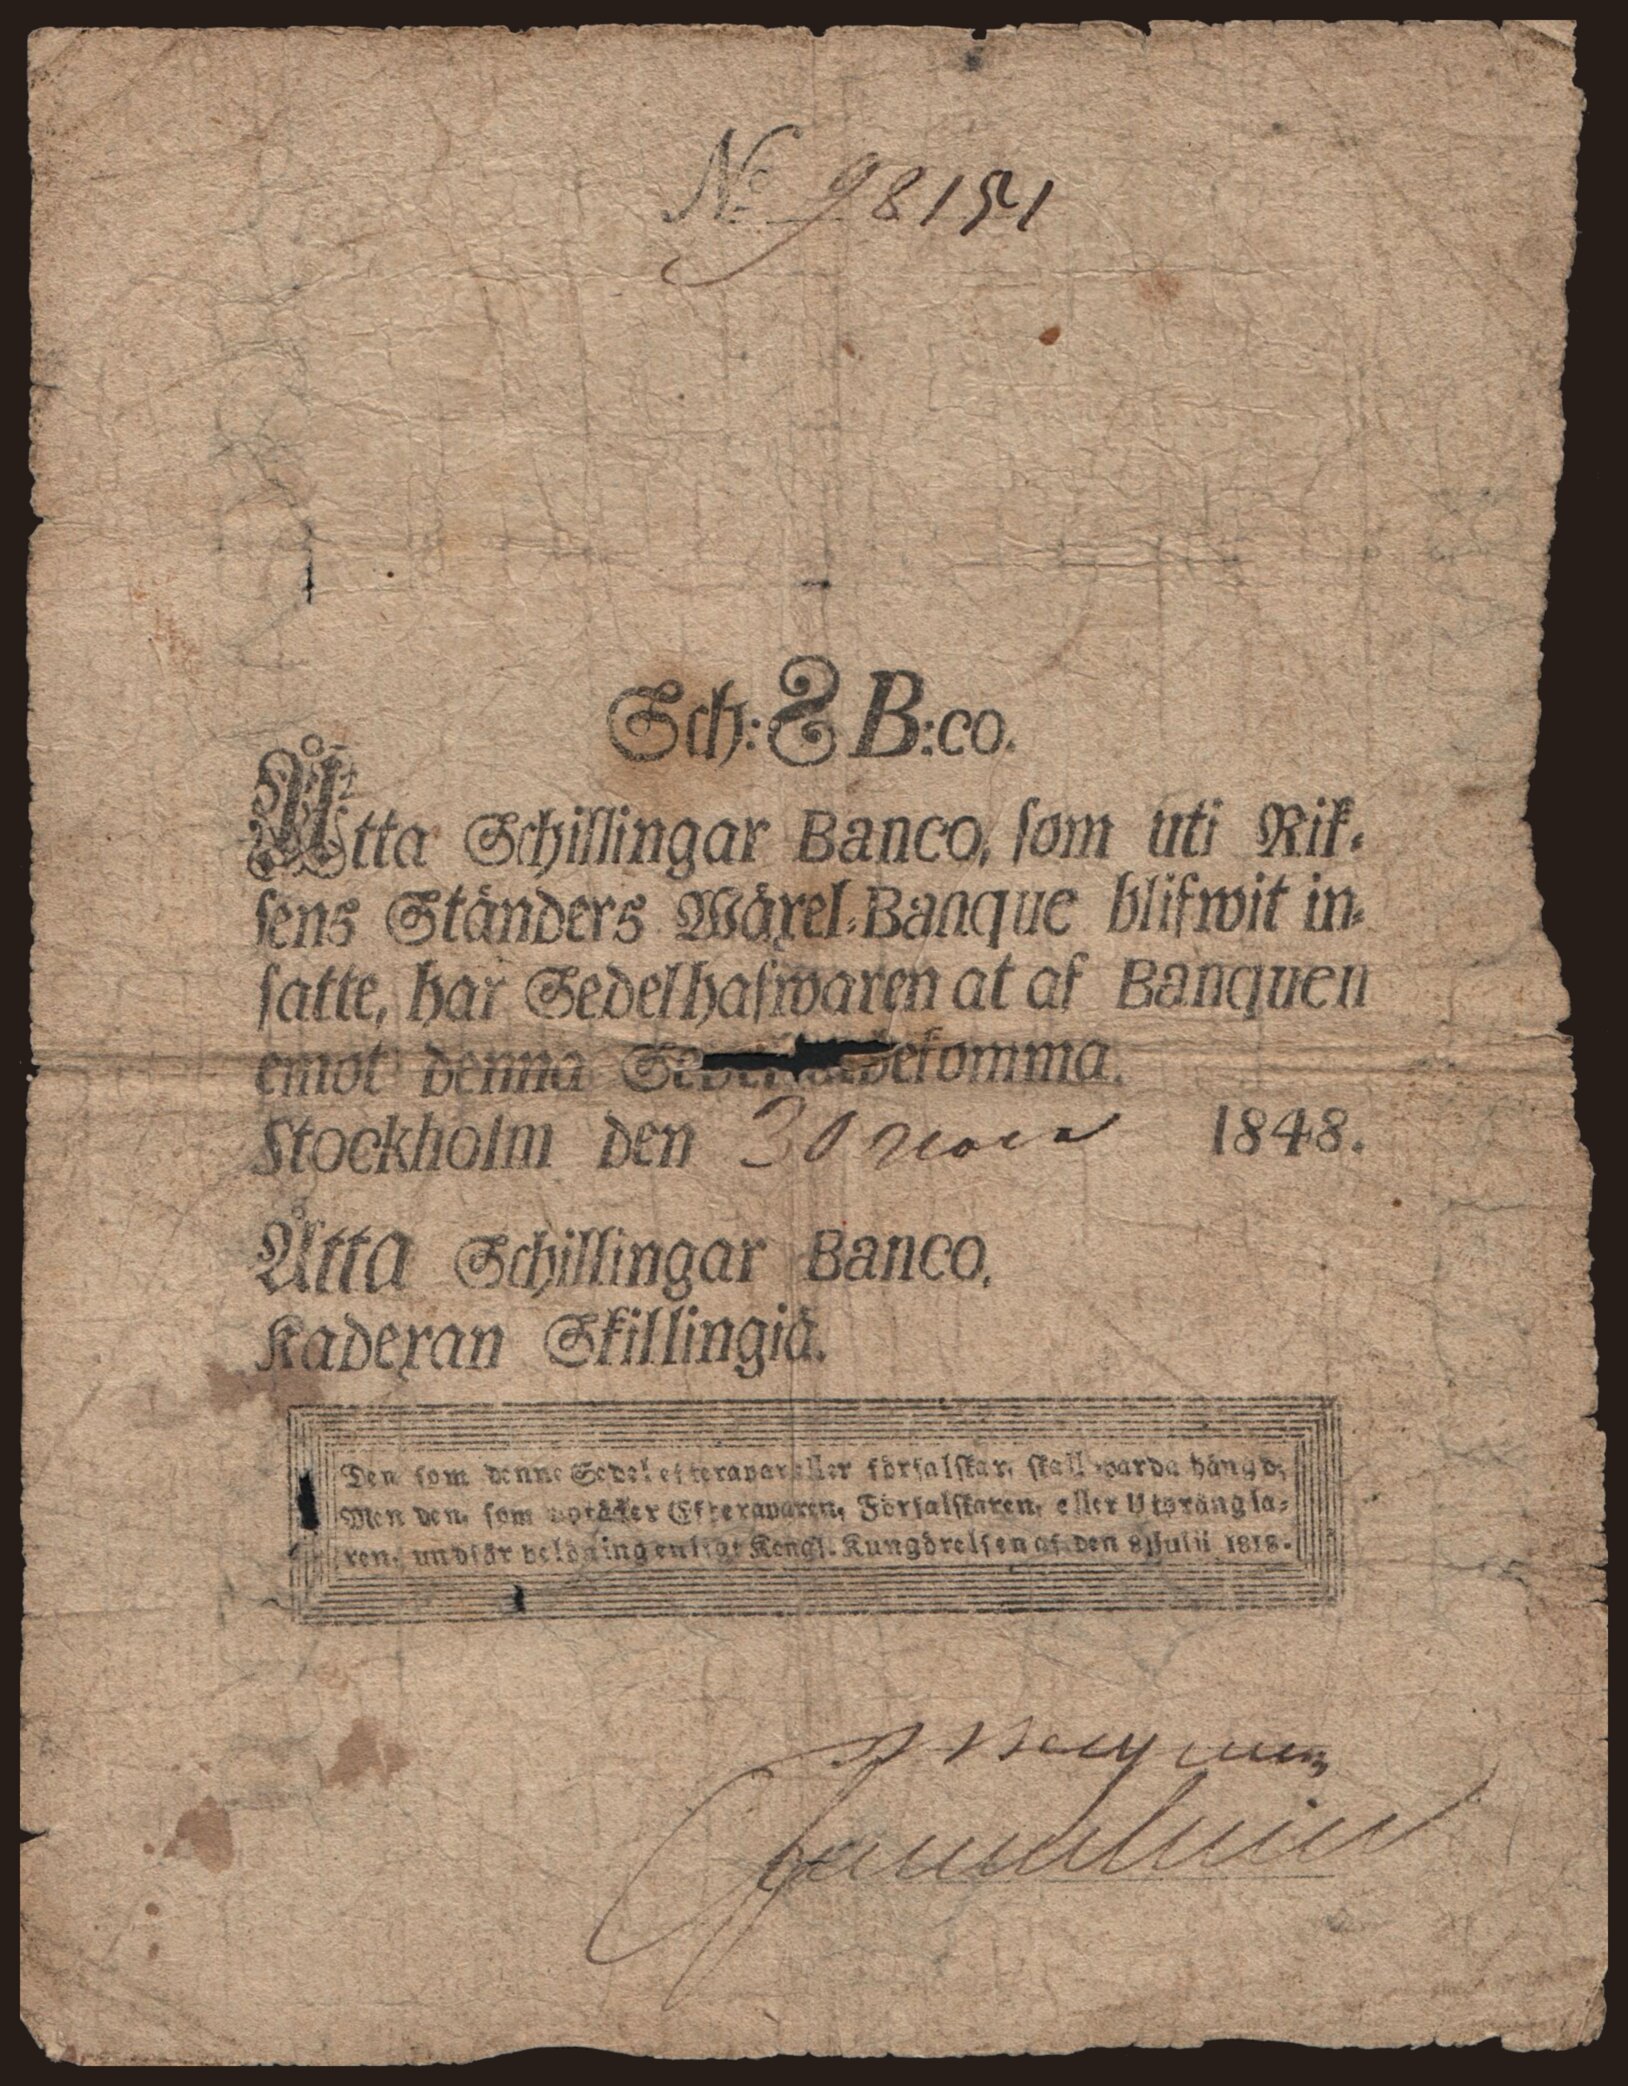 No 98151
Sch: 8 B:co.
Åtta Schillingar Banco, som uti Rik-
sens Ständers Wäxel-Banque blifwit in-
satte, har Sedelhafwaren at af Banquen
emot denna bekomma.
Stockholm den 30 Nov 1848.
Åtta Schillingar Banco.
Kaderan Skillingiä.
Den som denne Sedel efterapar eller förfalskar, skall warda hängd;
Men den, som upptäcker Efteraparen, Förfalskaren, eller Utprångla-
ren, undfår belöning enligt Kongl. Kungörelsen af den 8 Julii 1818.